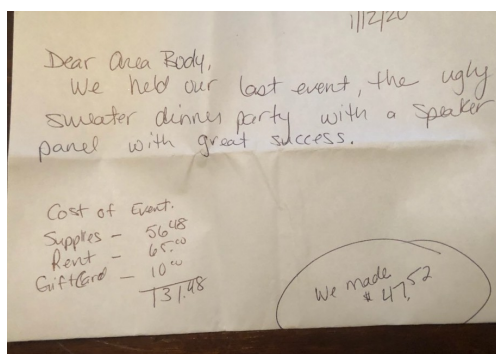 1/12/20
Dear Area Body,
We held our last event, the ugly
sweater dinner party with a Speaker
panel with great success.
Cost of Event.
Supplies - 56.48
Rent - 65.00
Gift Card - 10.00
131.48
We made
$ 47.52